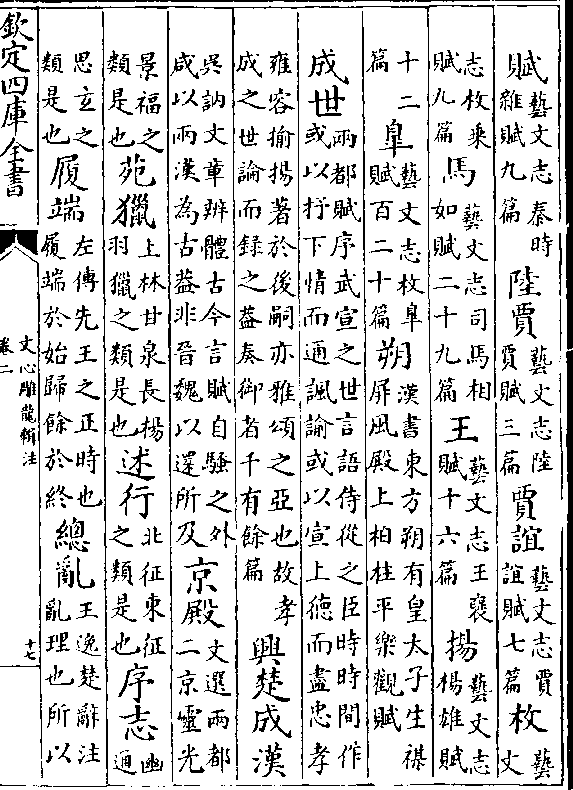 賦藝文志秦時雜賦九篇 陸賈藝文志陸賈賦三篇 賈誼藝文志賈誼賦七篇 枚藝文
志枚乘賦九篇 馬藝文志司馬相如賦二十九篇 王藝文志王褒賦十六篇 揚藝文志楊雄賦
十二篇 皐藝文志枚皐賦百二十篇 朔漢書東方朔有皇太子生禖屏風殿上柏柱平樂觀賦
成世兩都賦序武宣之世言語侍從之臣時時間作或以抒下情而通諷諭或以宣上德而盡忠孝
雍容揄揚著於後嗣亦雅頌之亞也故孝成之世論而録之葢奏御者千有餘篇 興楚成漢
吳訥文章辨體古今言賦自騷之外咸以兩漢為古葢非晉魏以還所及 京殿文選兩都二京靈光
景福之類是也 苑獵上林甘泉長楊羽獵之類是也 述行北征東征之類是也 序志幽通
思玄之類是也 履端左傳先王之正時也履端於始歸餘於終 總亂王逸楚辭注亂理也所以
欽定四庫全書
文心雕龍輯注
卷二
十七